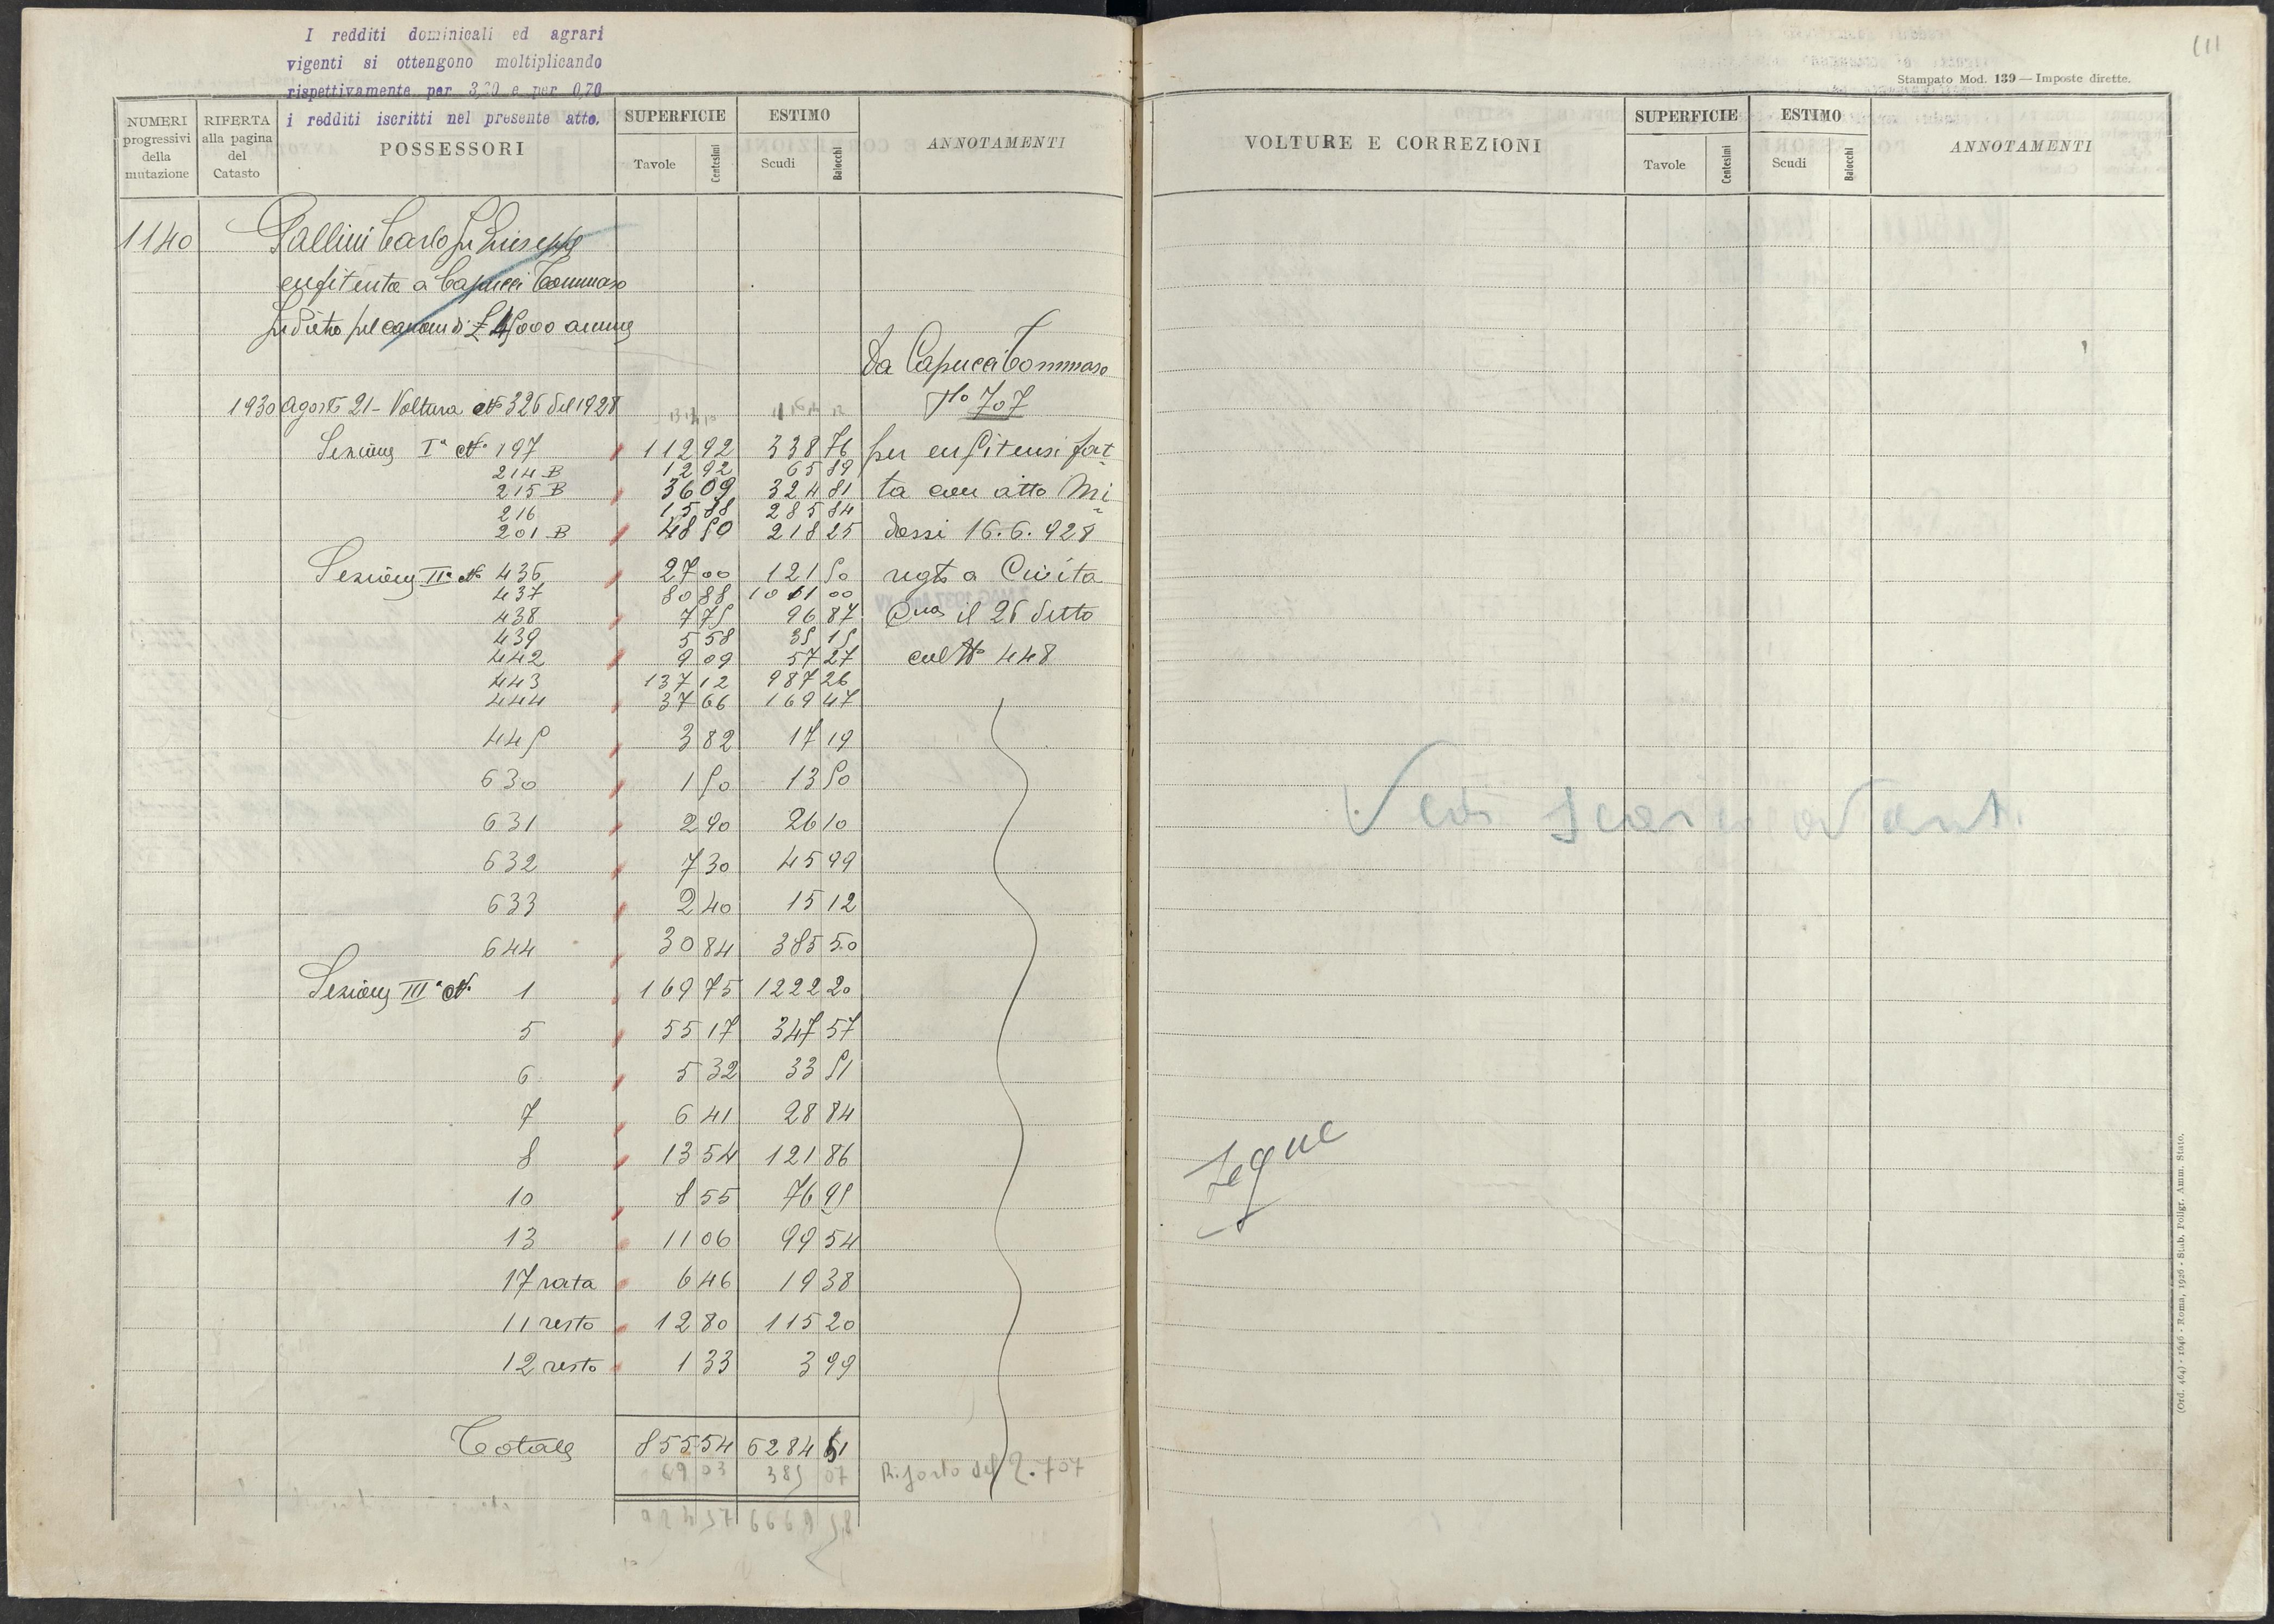 I redditi dominicali ed agrari
vigenti si ottengono moltiplicando
rispettivamente per 3,20 e per 0,70
i redditi iscritti nel presente atto.
NUMERI progressivi della mutazione
RIFERTA alla pagina del Catasto
POSSESSORI
SUPERFICIE
Tavole Centesimi
ESTIMO
Scudi Baiocchi
ANNOTAMENTI
1140 Pallini Carlo fu Giuseppe
enfiteuta a Capucci Tommaso
fu Pietro pel canone di £ 45000 annue
Da Capucci Tommaso
1930 Agosto 21 - Voltura N° 326 del 1928 N° 707
Sezione Iª N° 197 112 92 338 76 per enfiteusi fat-
214 B 12 92 65 89
215 B 36 09 324 81 ta con atto Mi-
216 15 88 285 84
201 B 48 50 218 25 dossi 16.6.928
Sezione IIª N° 436 27 00 121 50 regto a Civita
437 80 88 1011 00
438 7 75 96 87 il 26 detto
439 5 58 35 15
442 9 09 57 27 col N° 448
443 137 12 987 26
444 37 66 169 47
445 3 82 17 19
630 1 50 13 50
631 2 90 26 10
632 7 30 45 99
633 2 40 15 12
644 30 84 385 50
Sezione IIIª N° 1 169 75 1222 20
5 55 17 347 57
6 5 32 33 51
7 6 41 28 84
8 13 54 121 86
10 8 55 76 95
13 11 06 99 54
17 rata 6 46 19 38
11 resto 12 80 115 20
12 resto 1 33 3 99
Totale 855 54 6284 51
69 03 385 07 Riporto del 2.707
924 57 6669 58
Stampato Mod. 139 — Imposte dirette.
VOLTURE E CORREZIONI
SUPERFICIE
Tavole Centesimi
ESTIMO
Scudi Baiocchi
ANNOTAMENTI
Vedi
Segue
(Ord. 464) - 1646 - Roma, 1926 - Stab. Poligr. Amm. Stato.